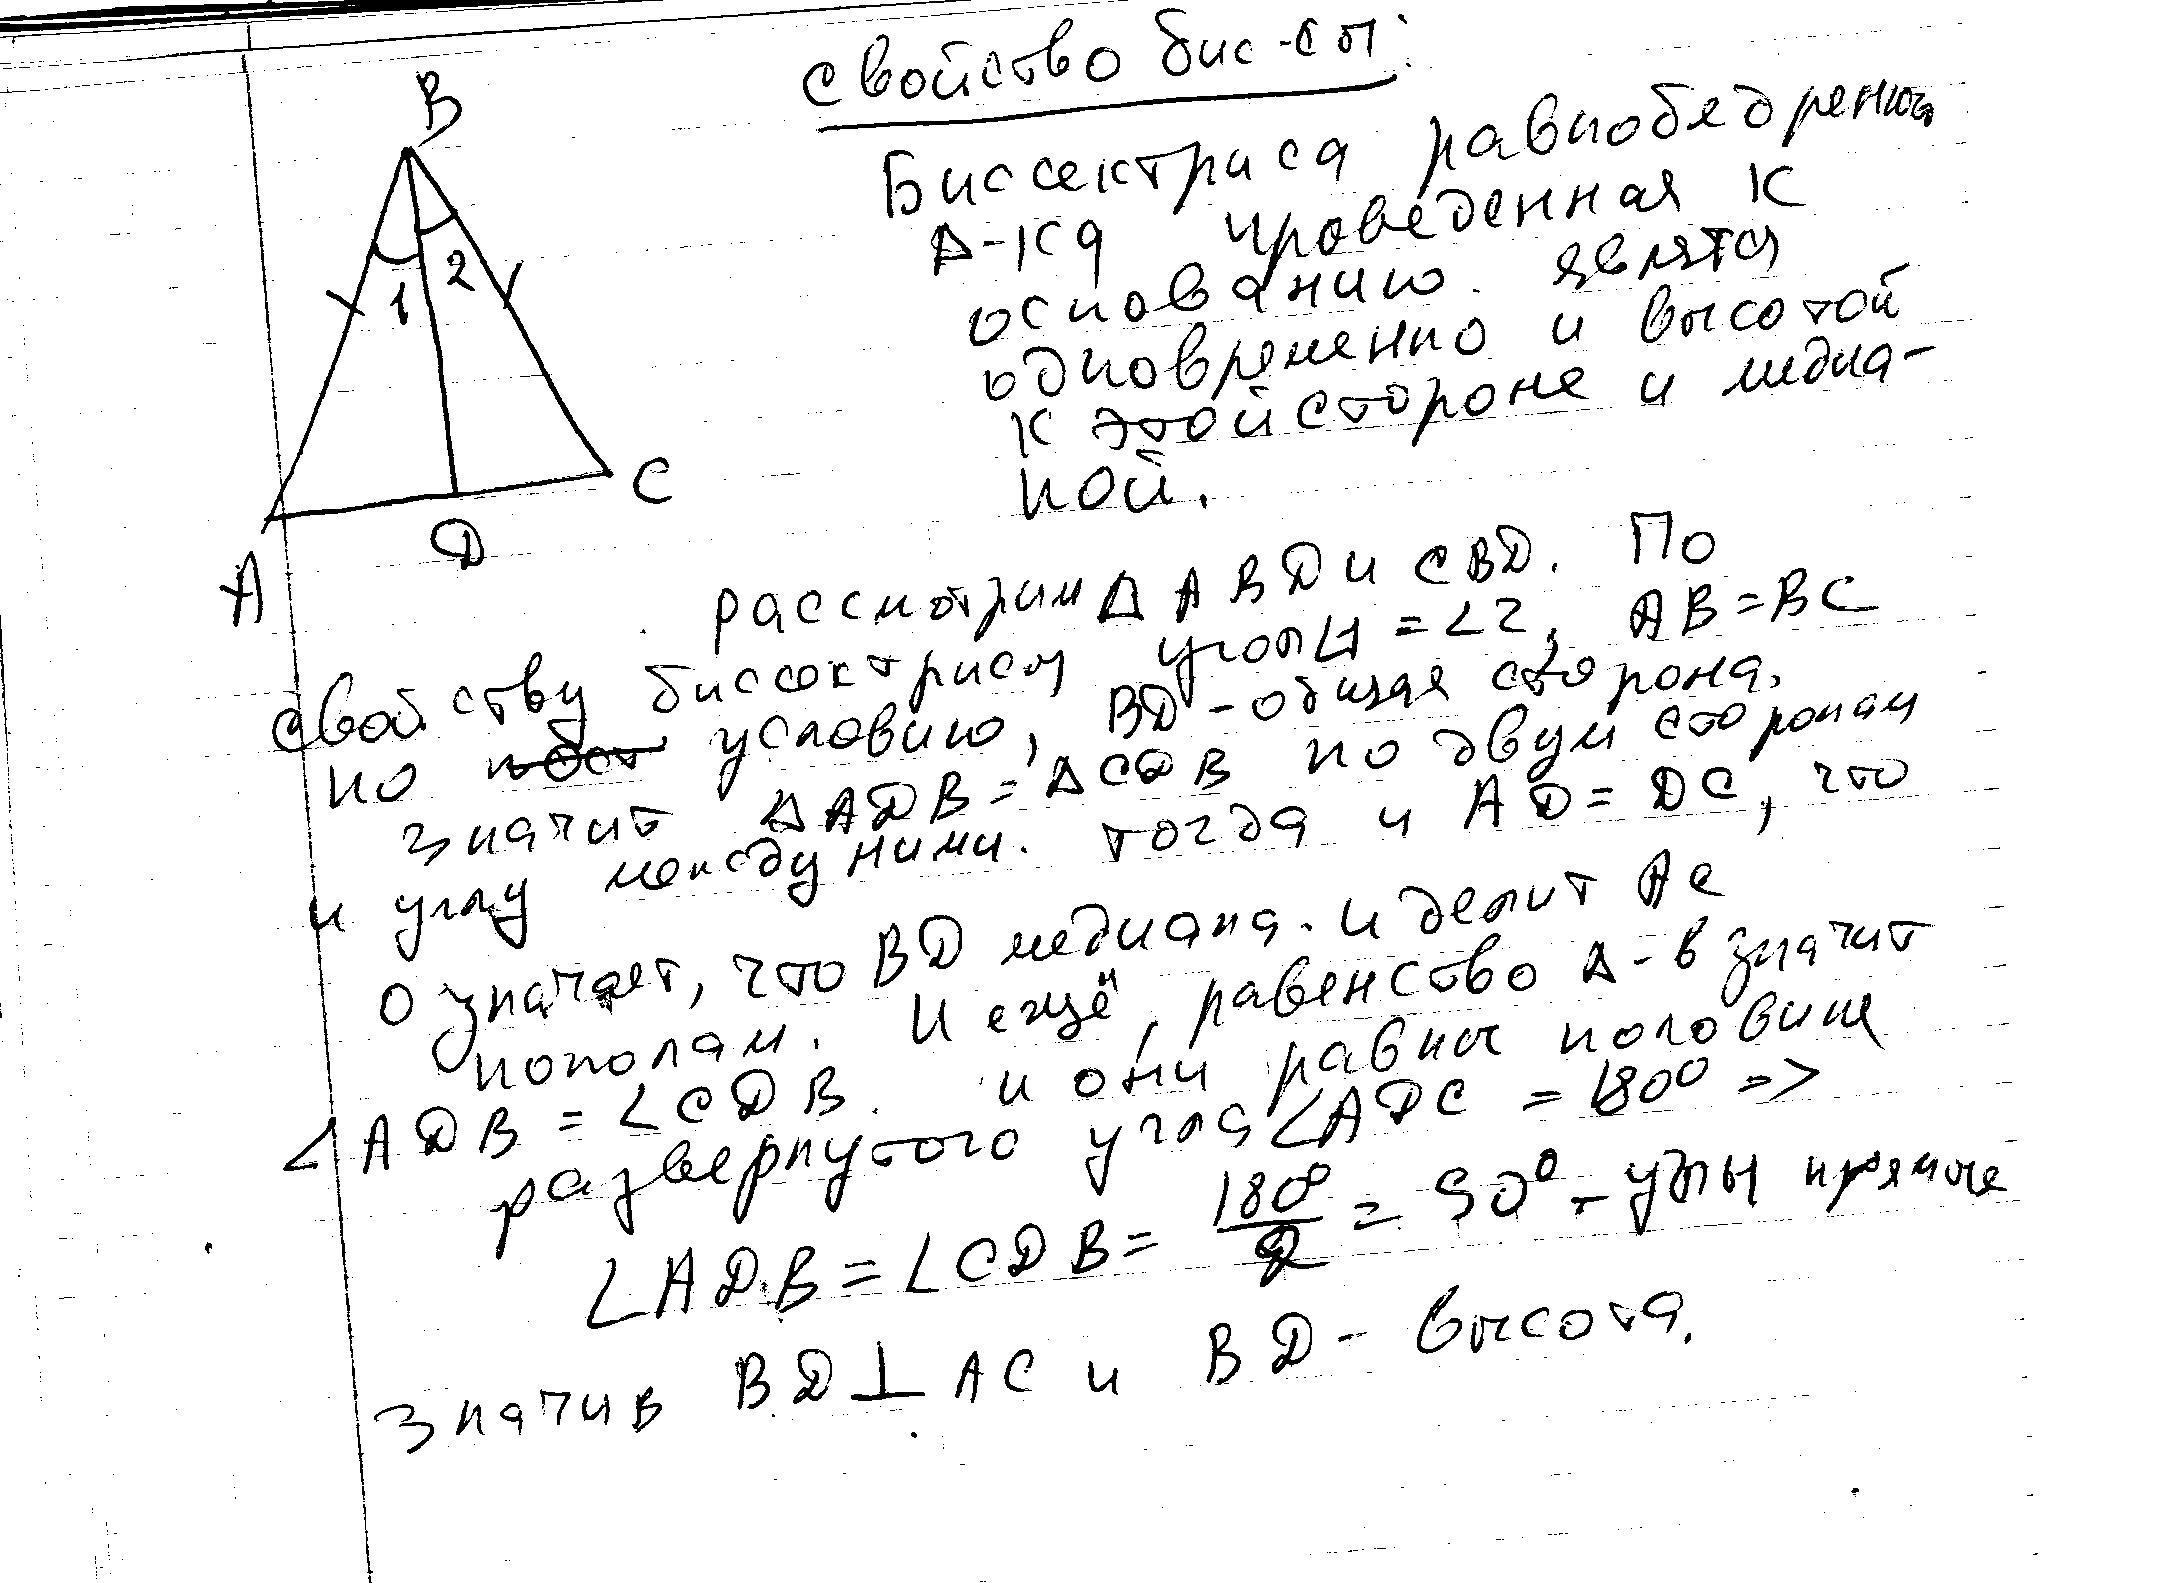 свойство бис-сы:
B
Биссектриса равнобедренного
Δ-ка проведенная к
2
1
основанию. являтся
одновременно и высотой
к этой стороне и медиа-
ной.
C
D
A
рассмотрим Δ ABD и CBD. По
свойству биссектрисы углы ∠1 = ∠2, AB = BC
по условию, BD - общая сторона.
значит Δ ADB = Δ CDB по двум сторонам
и углу между ними. тогда и AD = DC, что
означает, что BD медиана. и делит AC
пополам. И ещё, равенство Δ-в значит
∠ADB = ∠CDB. и они равны половине
развернутого угла ∠ADC = 180° =>
∠ADB = ∠CDB = 180°/2 = 90° - углы прямые
значив BD ⊥ AC и BD - высота.